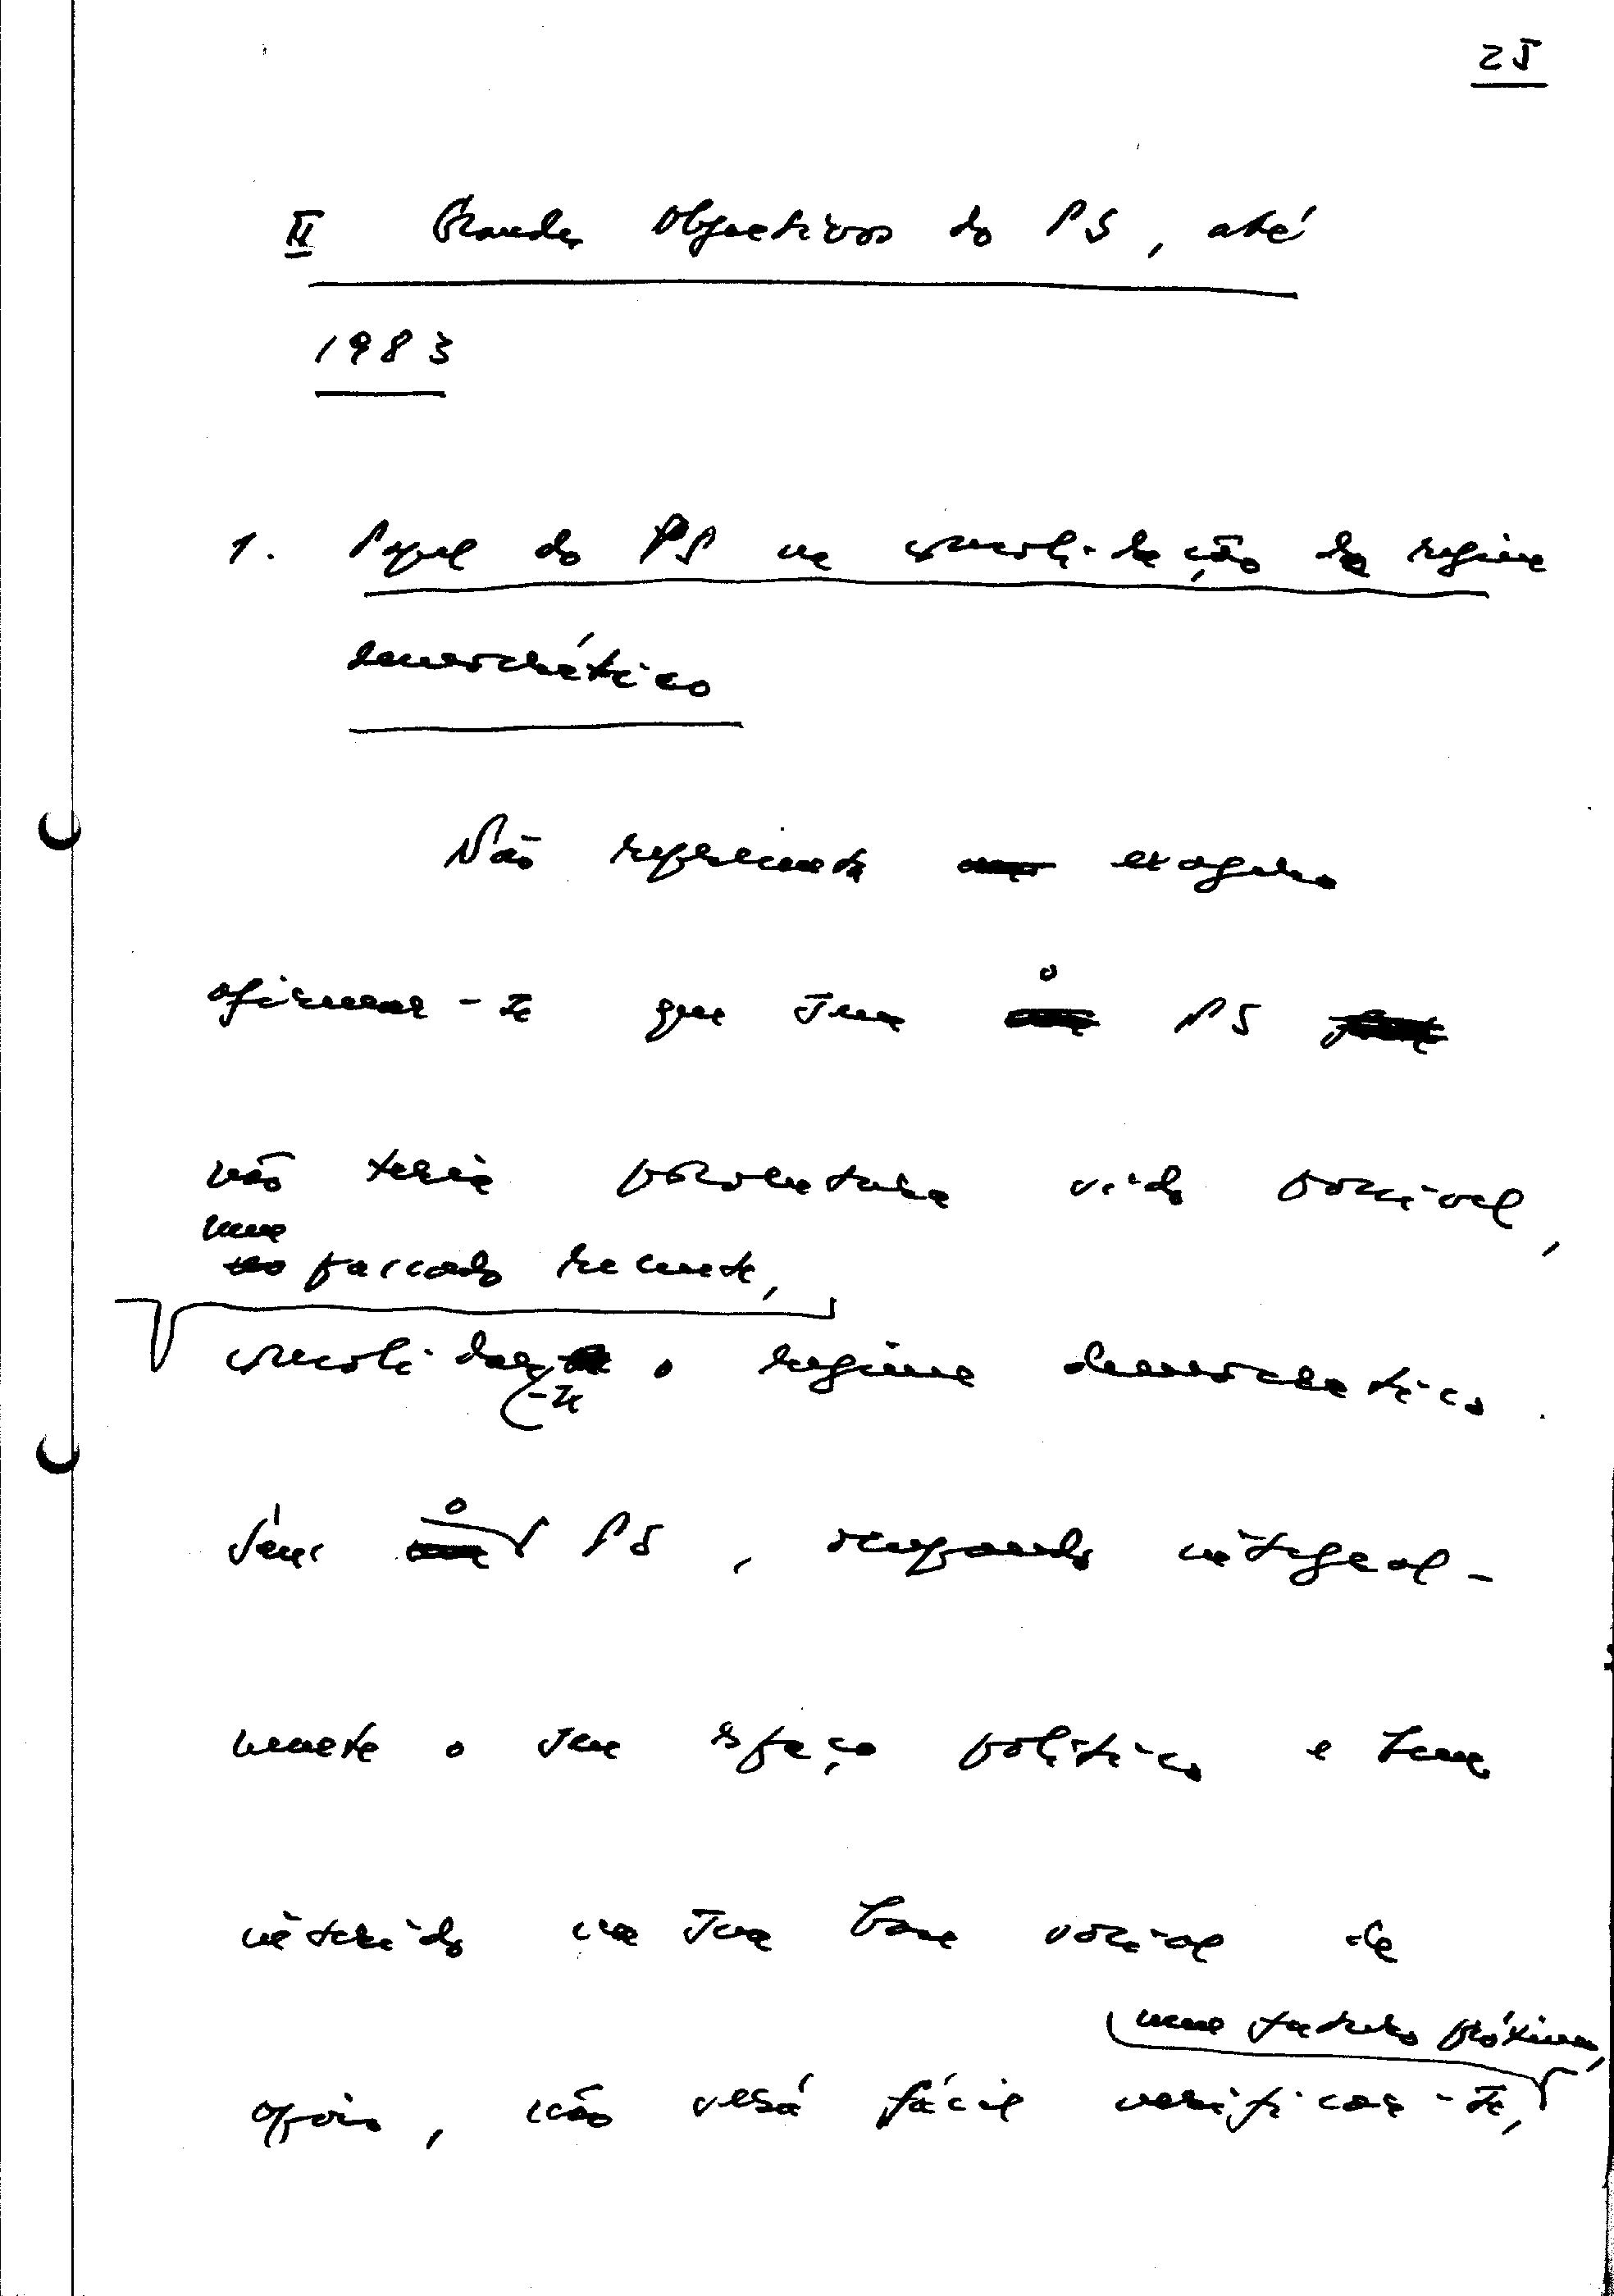 25
II Grandes Objectivos do PS, até
1983
1. Papel do PS na consolidação do regime
democrático
Não representa exagero
afirmar-se que sem o PS
não teria porventura sido possível,
num
passado recente,
consolidar-se o regime democrático.
Sem o PS, ocupando integral-
mente o seu espaço político e bem
inserido na sua base social de
num futuro próximo,
apoio, não será fácil verificar-se,